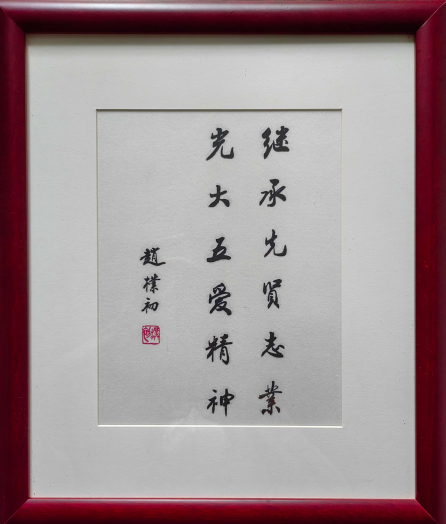 继承先贤志業
光大五爱精神
趙樸初